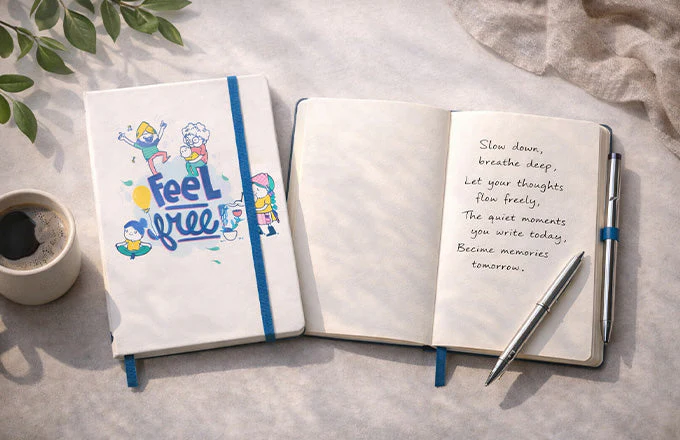 FeeL
free
Slow down,
breathe deep,
Let your thoughts
flow freely,
The quiet moments
you write today,
Becime memories
tomorrow.